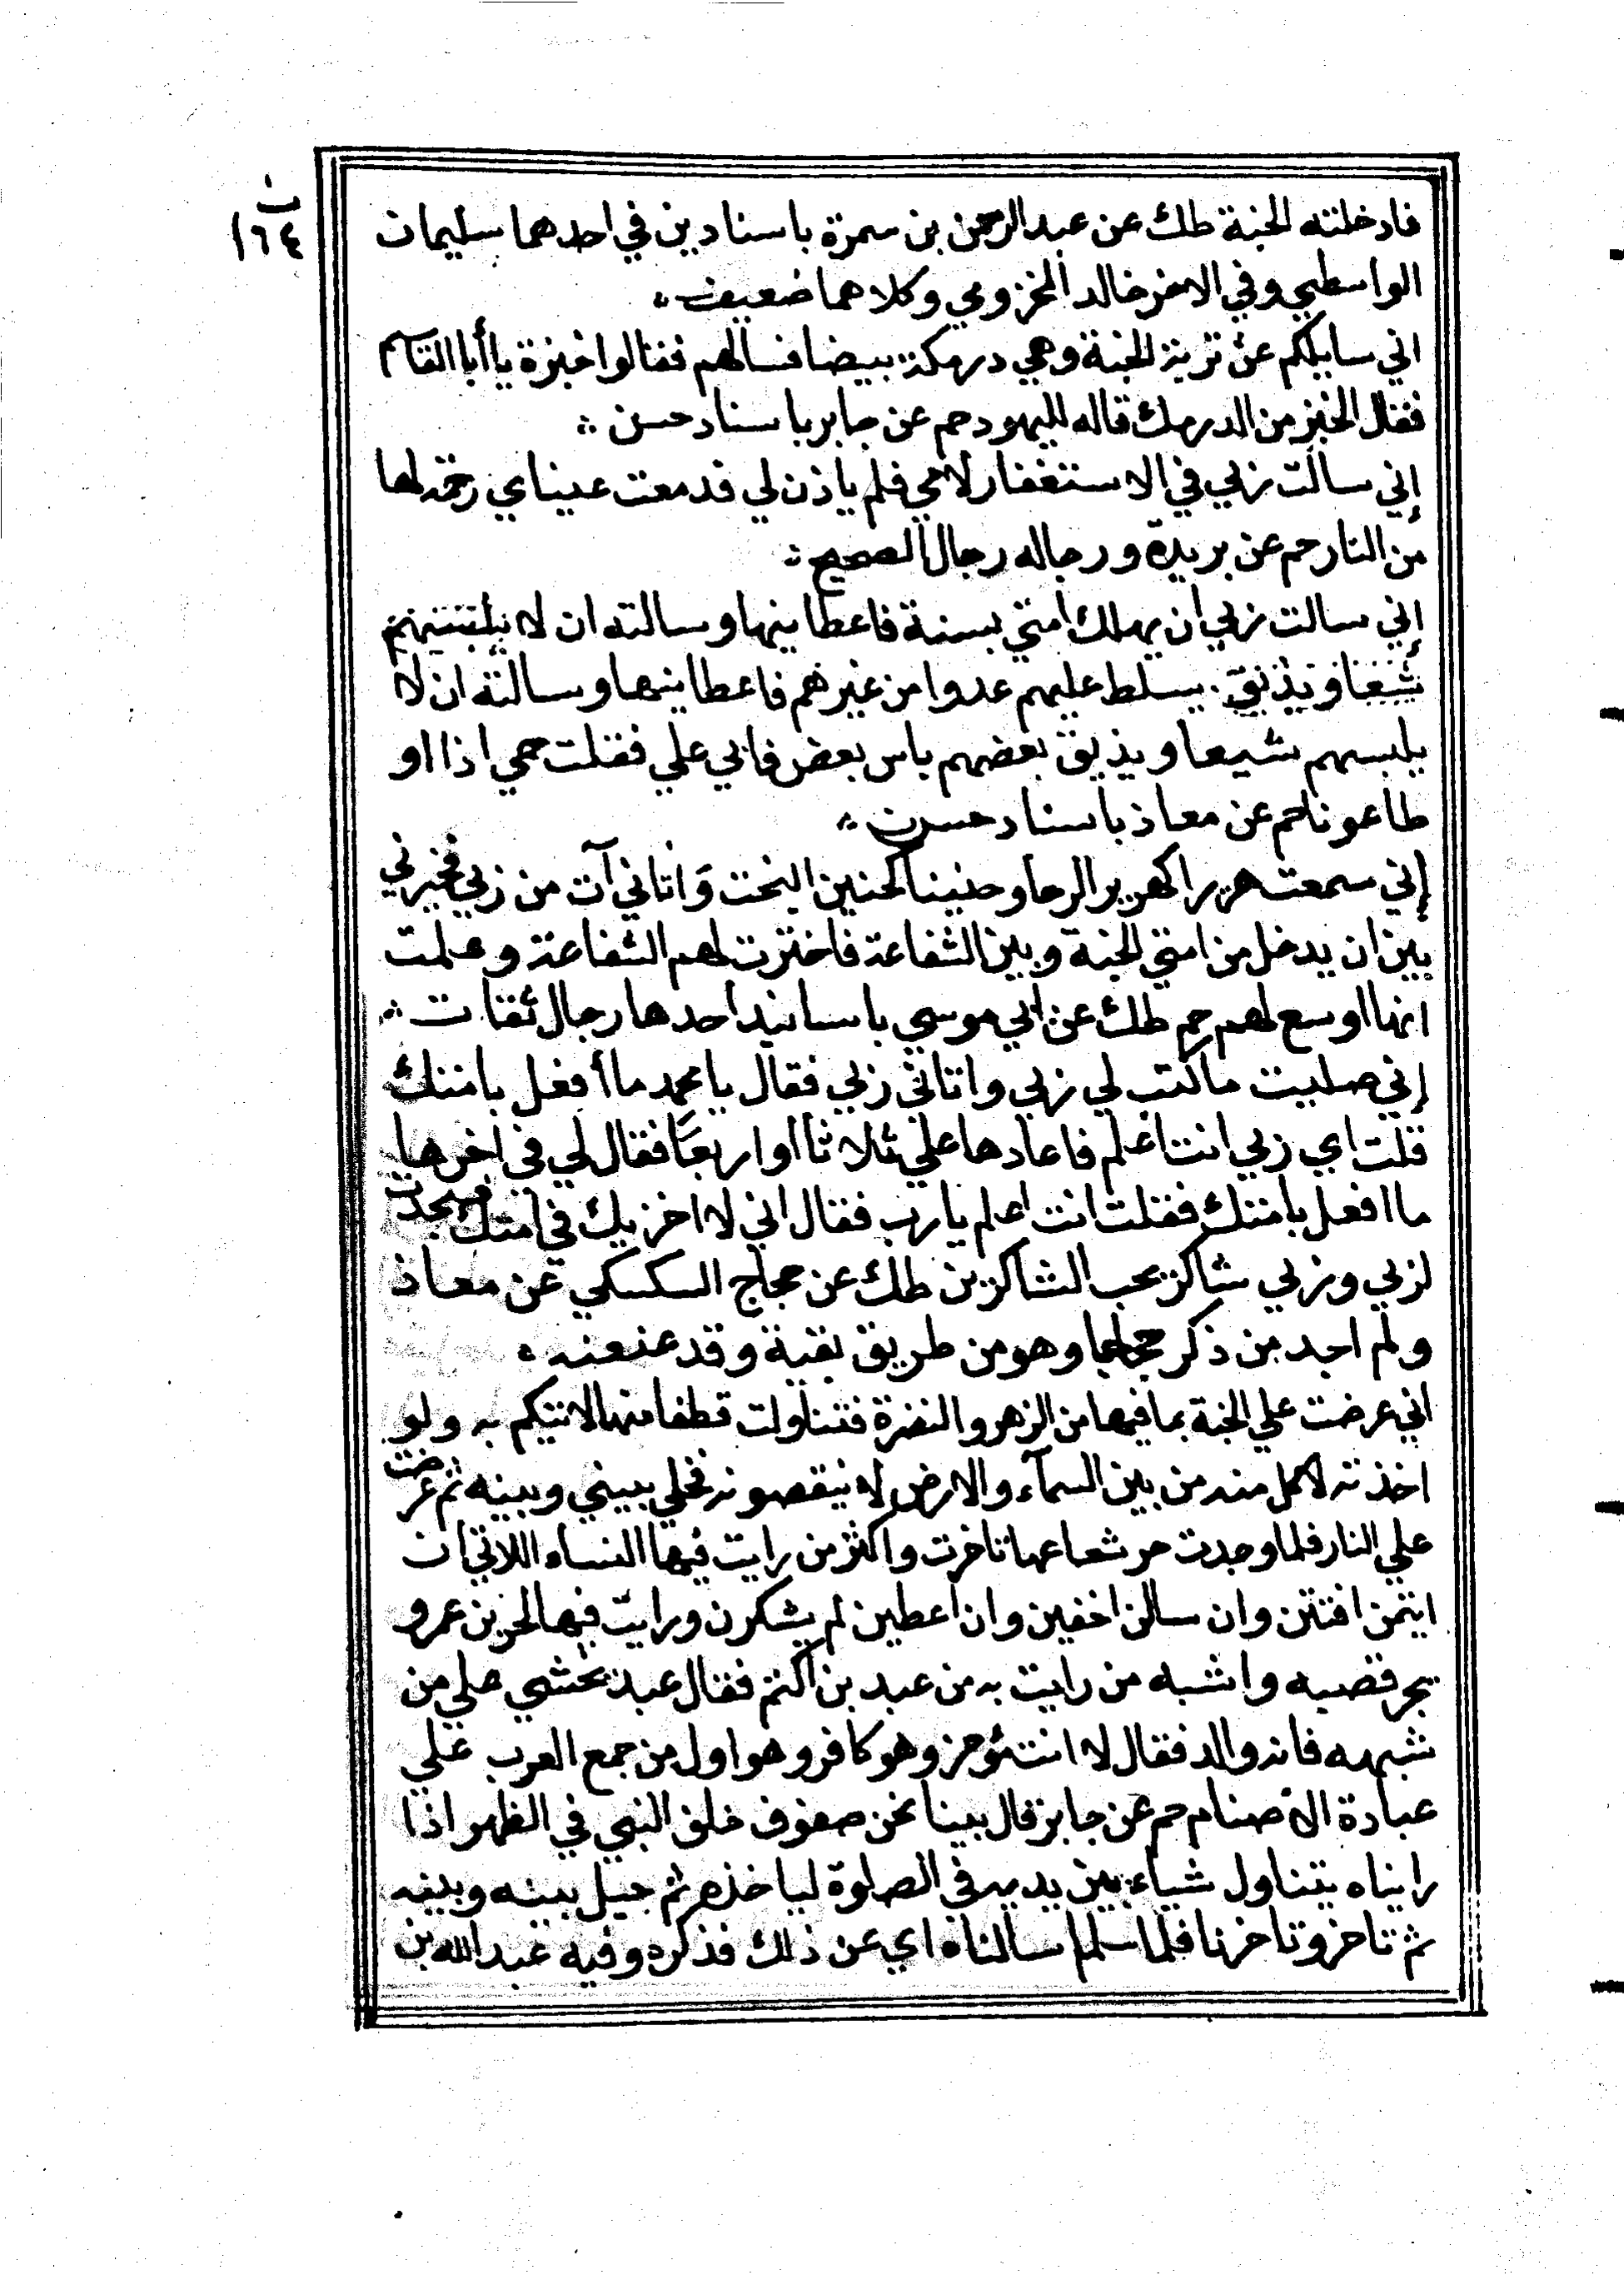 ن
١٦٤
فادخلته الجنة طك عن عبدالرحمن بن سمرة باسنادين في احدهما سليمان
الواسطي وفي الاخر خالد المخزومي وكلاهما ضعيف
اني سايلكم عن تربة الجنة وهي درمكة بيضا فسالهم فقالوا خبزة يا أبا القاسم
فقال الخبز من الدرمك قاله لليهود حم عن جابر باسناد حسن
إني سالت ربي في الاستغفار لامي فلم ياذن لي فدمعت عيناي رحمة لها
من النار حم عن بريدة ورجاله رجال الصحيح
إني سالت ربي ان يهلك امتي بسنة فاعطانيها وسالته ان لا يلبسهم
شيعا ويذيق يسلط عليهم عدوا من غيرهم فاعطانيها وسالته ان لا
يلبسهم شيعا ويذيق بعضهم باس بعض فابي علي فقلت حمي اذا او
طاعونا حم عن معاذ باسناد حسن
إني سمعت هريرا كهرير الرحا وحنينا كحنين النحت واتاني آت من ربي فخيرني
بين ان يدخل من امتي الجنة وبين الشفاعة فاخترت لهم الشفاعة وعلمت
انها اوسع لهم حم طك عن ابي موسي باسانيد احدها رجال ثقات
إني صليت ما كتب لي ربي واتاني ربي فقال يا محمد ما أفعل بامتك
قلت اي ربي انت اعلم فاعادها علي ثلاثا أو اربعا فقال لي في اخرها
ما افعل بامتك فقلت انت اعلم يارب فقال اني لا اخزيك في امتك فسجدت
لربي وربي شاكر يحب الشاكرين طك عن حجاج السكسكي عن معاذ
ولم اجد من ذكر حجاجا وهو من طريق بقية وقد عنعنه
اني عرضت علي الجنة بما فيها من الزهر والنضرة فتناولت قطفا منها لاتيكم به ولو
اخذته لاكل منه من بين السمآء والارض لا ينقصونه فحلي بيني وبينه ثم عرضت
علي النار فلما وجدت حر شعاعها تاخرت واكثر من رايت فيها النساء اللاتي ان
ايتمن افشين وان سالن اخفين وان اعطين لم يشكرن ورايت فيها لحي بن عمرو
يجر قصبه واشبه من رايت به من عبد بن اكثم فقال عبد تخشي علي من
شبهه فانه والد فقال لا انت مؤمن وهو كافر وهو اول من جمع العرب علي
عبادة الاصنام حم عن جابر قال بينا نحن صفوف خلف النبي في الظهر اذا
رايناه يتناول شياء بين يديه في الصلوة لياخذه ثم حيل بينه وبينه
ثم تاخر وتاخرنا فلما سلم سالناه اي عن ذلك فذكره وفيه عبدالله بن